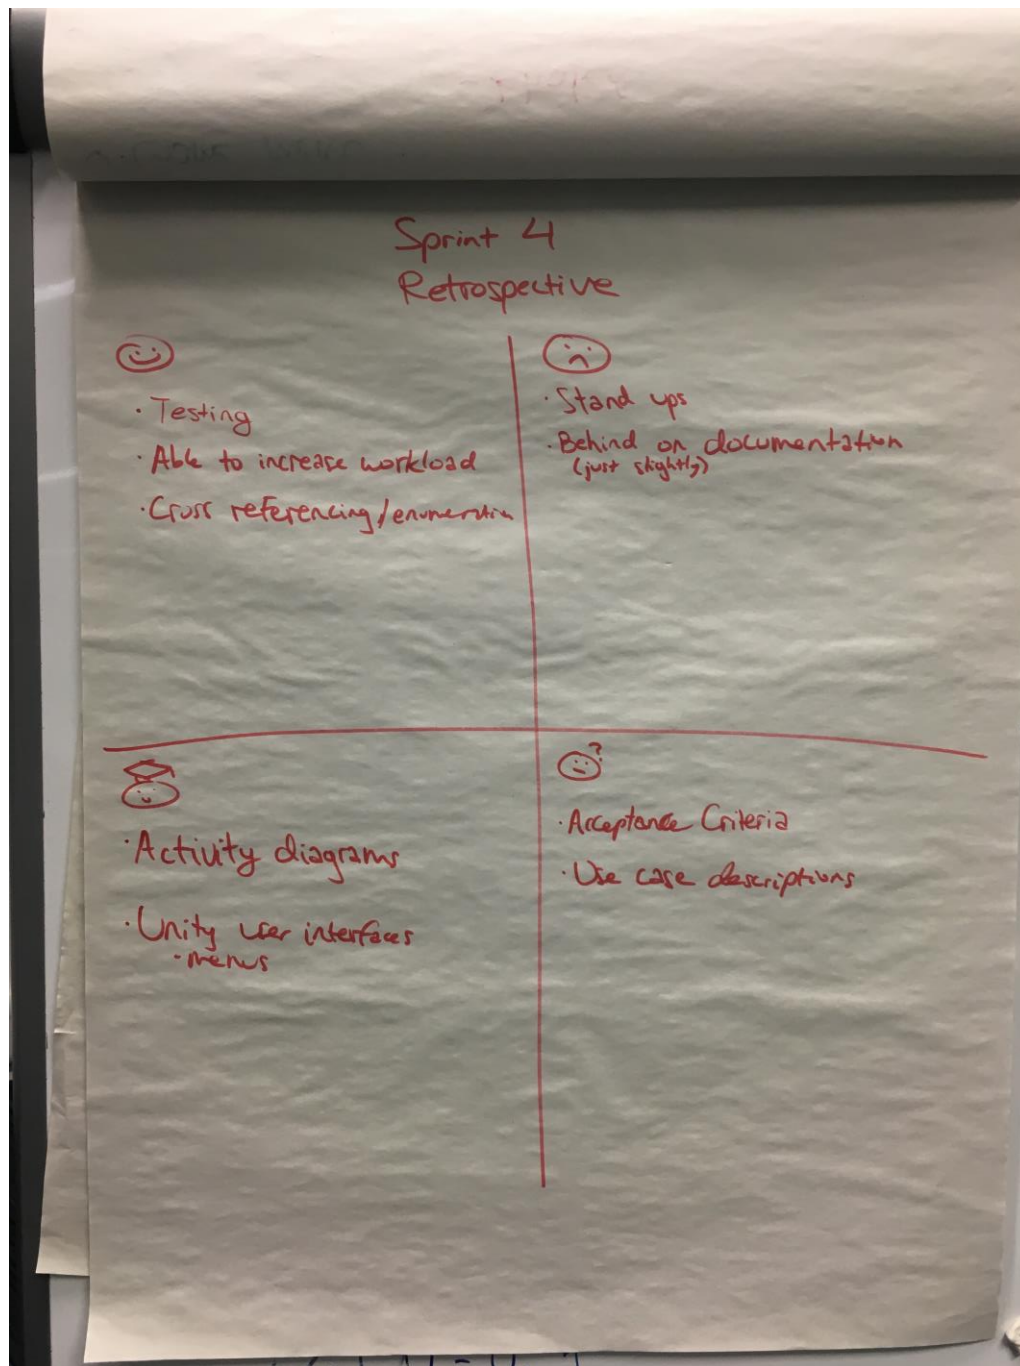 Sprint 4
Retrospective
· Testing
· Able to increase workload
· Cross referencing/enumeration
· Stand ups
· Behind on documentation
(just slightly)
· Activity diagrams
· Unity user interfaces
· menus
?
· Acceptance Criteria
· Use case descriptions